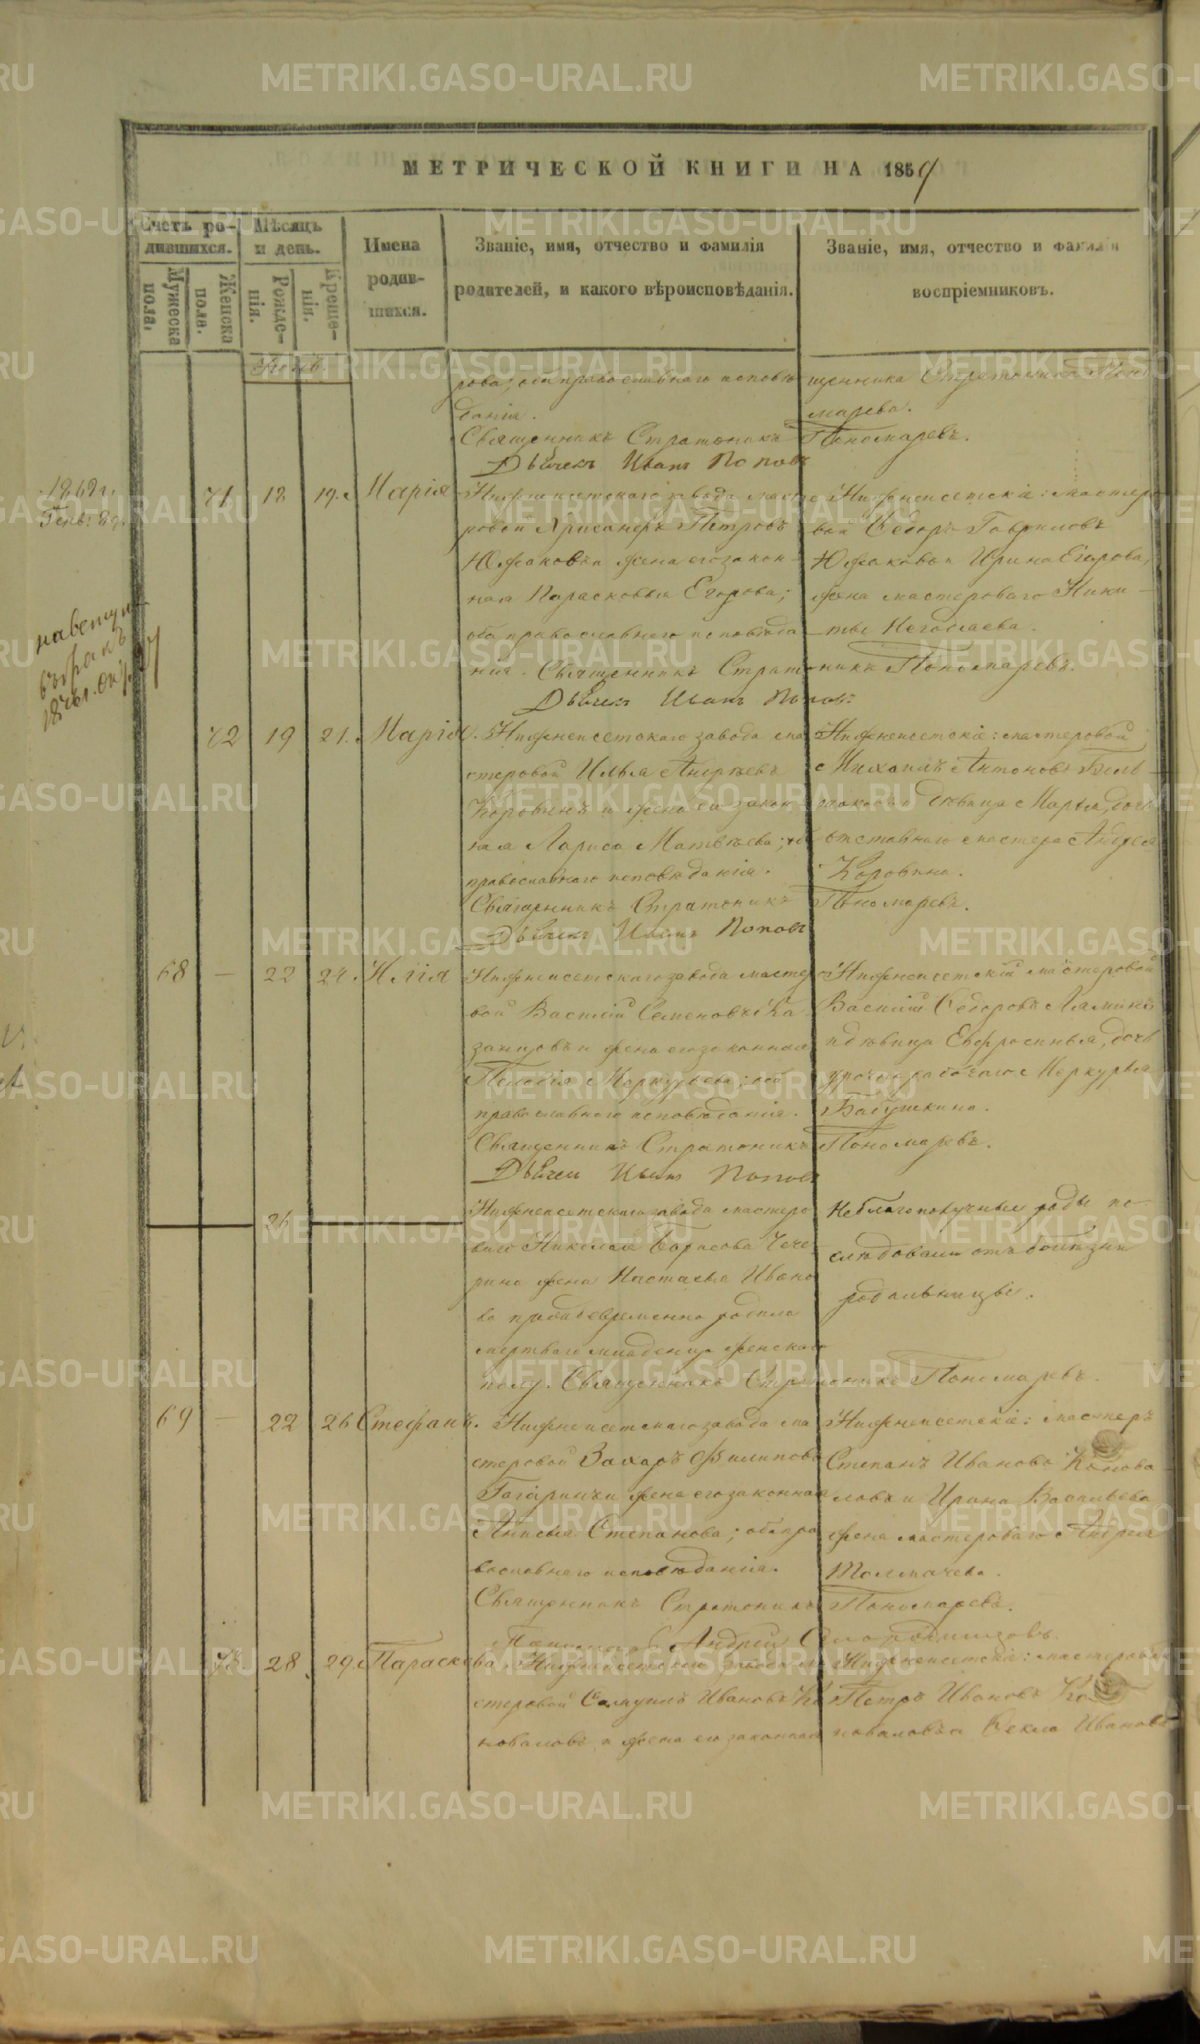 METRIKI.GASO-URAL.RU
МЕТРИЧЕСКОЙ КНИГИ НА 1859
Счетъ родившихся.
Мужеска пола.
Женска пола.
Мѣсяцъ и день.
Рожденія.
Крещенія.
Имена родившихся.
Званіе, имя, отчество и фамилія родителей, и какого вѣроисповѣданія.
Званіе, имя, отчество и фамилія воспріемниковъ.
рова; оба православнаго исповѣ
данія.
Священникъ Стратоникъ
Дьячекъ Иванъ Поповъ
щенника Стратоника Поно
марева.
Пономаревъ.
71 18 19. Марія
Нижнеисетскаго завода масте
ровой Петровъ
Южаковъ и жена его закон
ная Парасковья Егорова;
оба православнаго исповѣда
нія. Священникъ Страто
Дьячекъ Иванъ Поповъ
Нижнеисетскіе: мастеро
вой Ѳедоръ Гавриловъ
Южаковъ и Ирина Егорова,
жена мастероваго Ники
ты Негодяева.
никъ Пономаревъ.
72 19 21. Марія.
Нижнеисетскаго завода ма
стеровой Илья Андреевъ
Коровинъ и жена его закон
ная Лариса Матвѣева; об
православнаго исповѣданія.
Священникъ Стратоникъ
Дьячекъ Иванъ Поповъ
Нижнеисетскіе: мастеровой
Михаилъ Антоновъ
и дѣвица Марья, дочь
отставнаго мастера Андрея
Коровина.
Пономаревъ.
68 — 22 24. Илія
Нижнеисетскаго завода масте
вой Василій Семеновъ Ка
занцовъ и жена его законная
Пелагія Меркурьева; оба
православнаго исповѣданія.
Священникъ Стратоникъ
Дьячекъ Иванъ Поповъ
Нижнеисетскій мастеровой
Василій Ѳедоровъ Ляминъ
и дѣвица Евфросинья, дочь
урочнорабочаго Меркурья
Бабушкина.
Пономаревъ.
26
Нижнеисетскаго завода мастеро
ваго Николая Борисова Чече
рина жена Настасья Ивано
ва преждевременно родила
мертваго младенца женскаго
полу. Священникъ Страто
Неблагополучные роды по
слѣдовали отъ болѣзни
родильницы.
никъ Пономаревъ.
69 — 22 26 Стефанъ.
Нижнеисетскаго завода ма
стеровой Захаръ Филиповъ
Гагаринъ и жена его законная
Анисья Степанова; оба пра
вославнаго исповѣданія.
Священникъ Стратоникъ
Андрей
Нижнеисетскіе: мастеръ
Степанъ Ивановъ Конова
ловъ и Ирина Васильева
жена мастероваго Андрея
Толмачева.
Пономаревъ.
73 28 29. Параскева.
Нижнеисетскаго завода ма
стеровой Самуилъ Ивановъ Ко
новаловъ и жена его законная
Нижнеисетскіе: мастеровой
Петръ Ивановъ Ко
новаловъ и Ѳекла Иванова